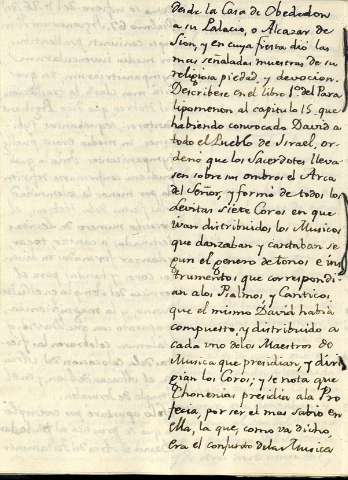 desde la Casa de Obededon
a su Palacio, o Alcazar de
Sion, y en cuya fiesta dió las
mas señaladas muestras de su
religiosa piedad, y devocion.
Describese en el libro 1º del Para
lipomenon al capitulo 15. que
habiendo convocado David a
todo el Pueblo de Israel, or-
denó que los Sacerdotes lleva-
sen sobre sus ombros el Arca
del Señor, y formó de todos los
Levitas siete Coros en que
ivan distribuidos los Musicos
que danzaban y cantaban se
gun el genero de tonos e ins
trumentos que correspondi-
an a los Psalmos y Canticos
que el mismo David habia
compuesto, y distribuido a
cada uno de los Maestros de
Musica que presidian, y diri
gian los Coros; y se nota que
Chonenias presidia la Pro
fecia, por ser el mas sabio en
ella, la que, como va dicho,
era el conjunto de la Musica